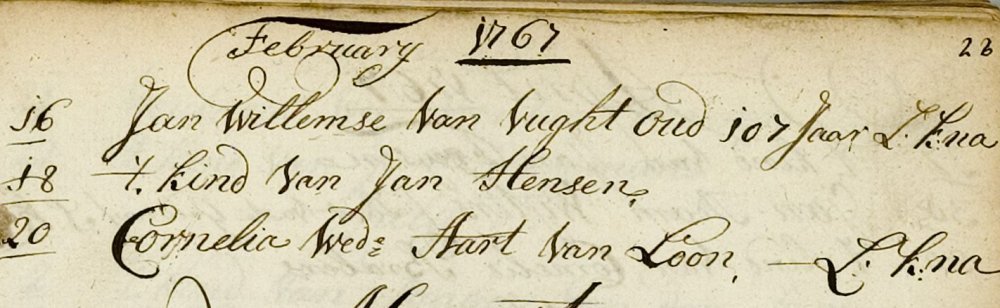 February 1767 23
16 Jan Willemse Van Vught oud 107 Jaar L: k:na
18 't. kind Van Jan Hensen,
20 Cornelia Wede Aart Van Loon, — L: k:na